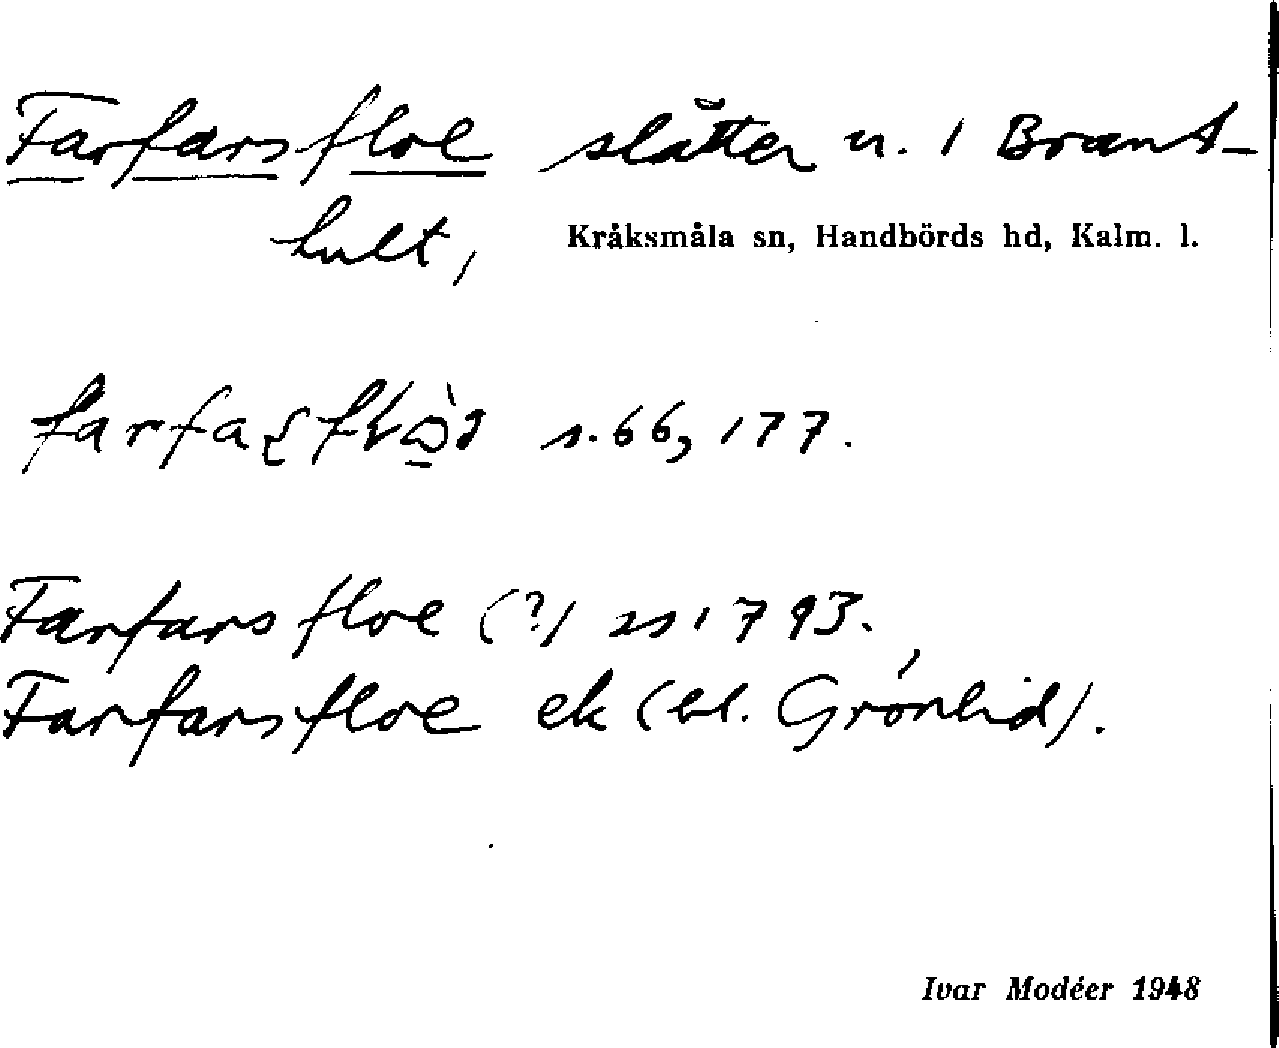 Farfarsfloe slåtter u. 1 Brant-
hult, Kråksmåla sn, Handbörds hd, Kalm. l.
farfa s. 66, 177.
Farfars floe (?) 1793.
Farfarsfloe ek (bl. Grönlid).
Ivar Modéer 1948